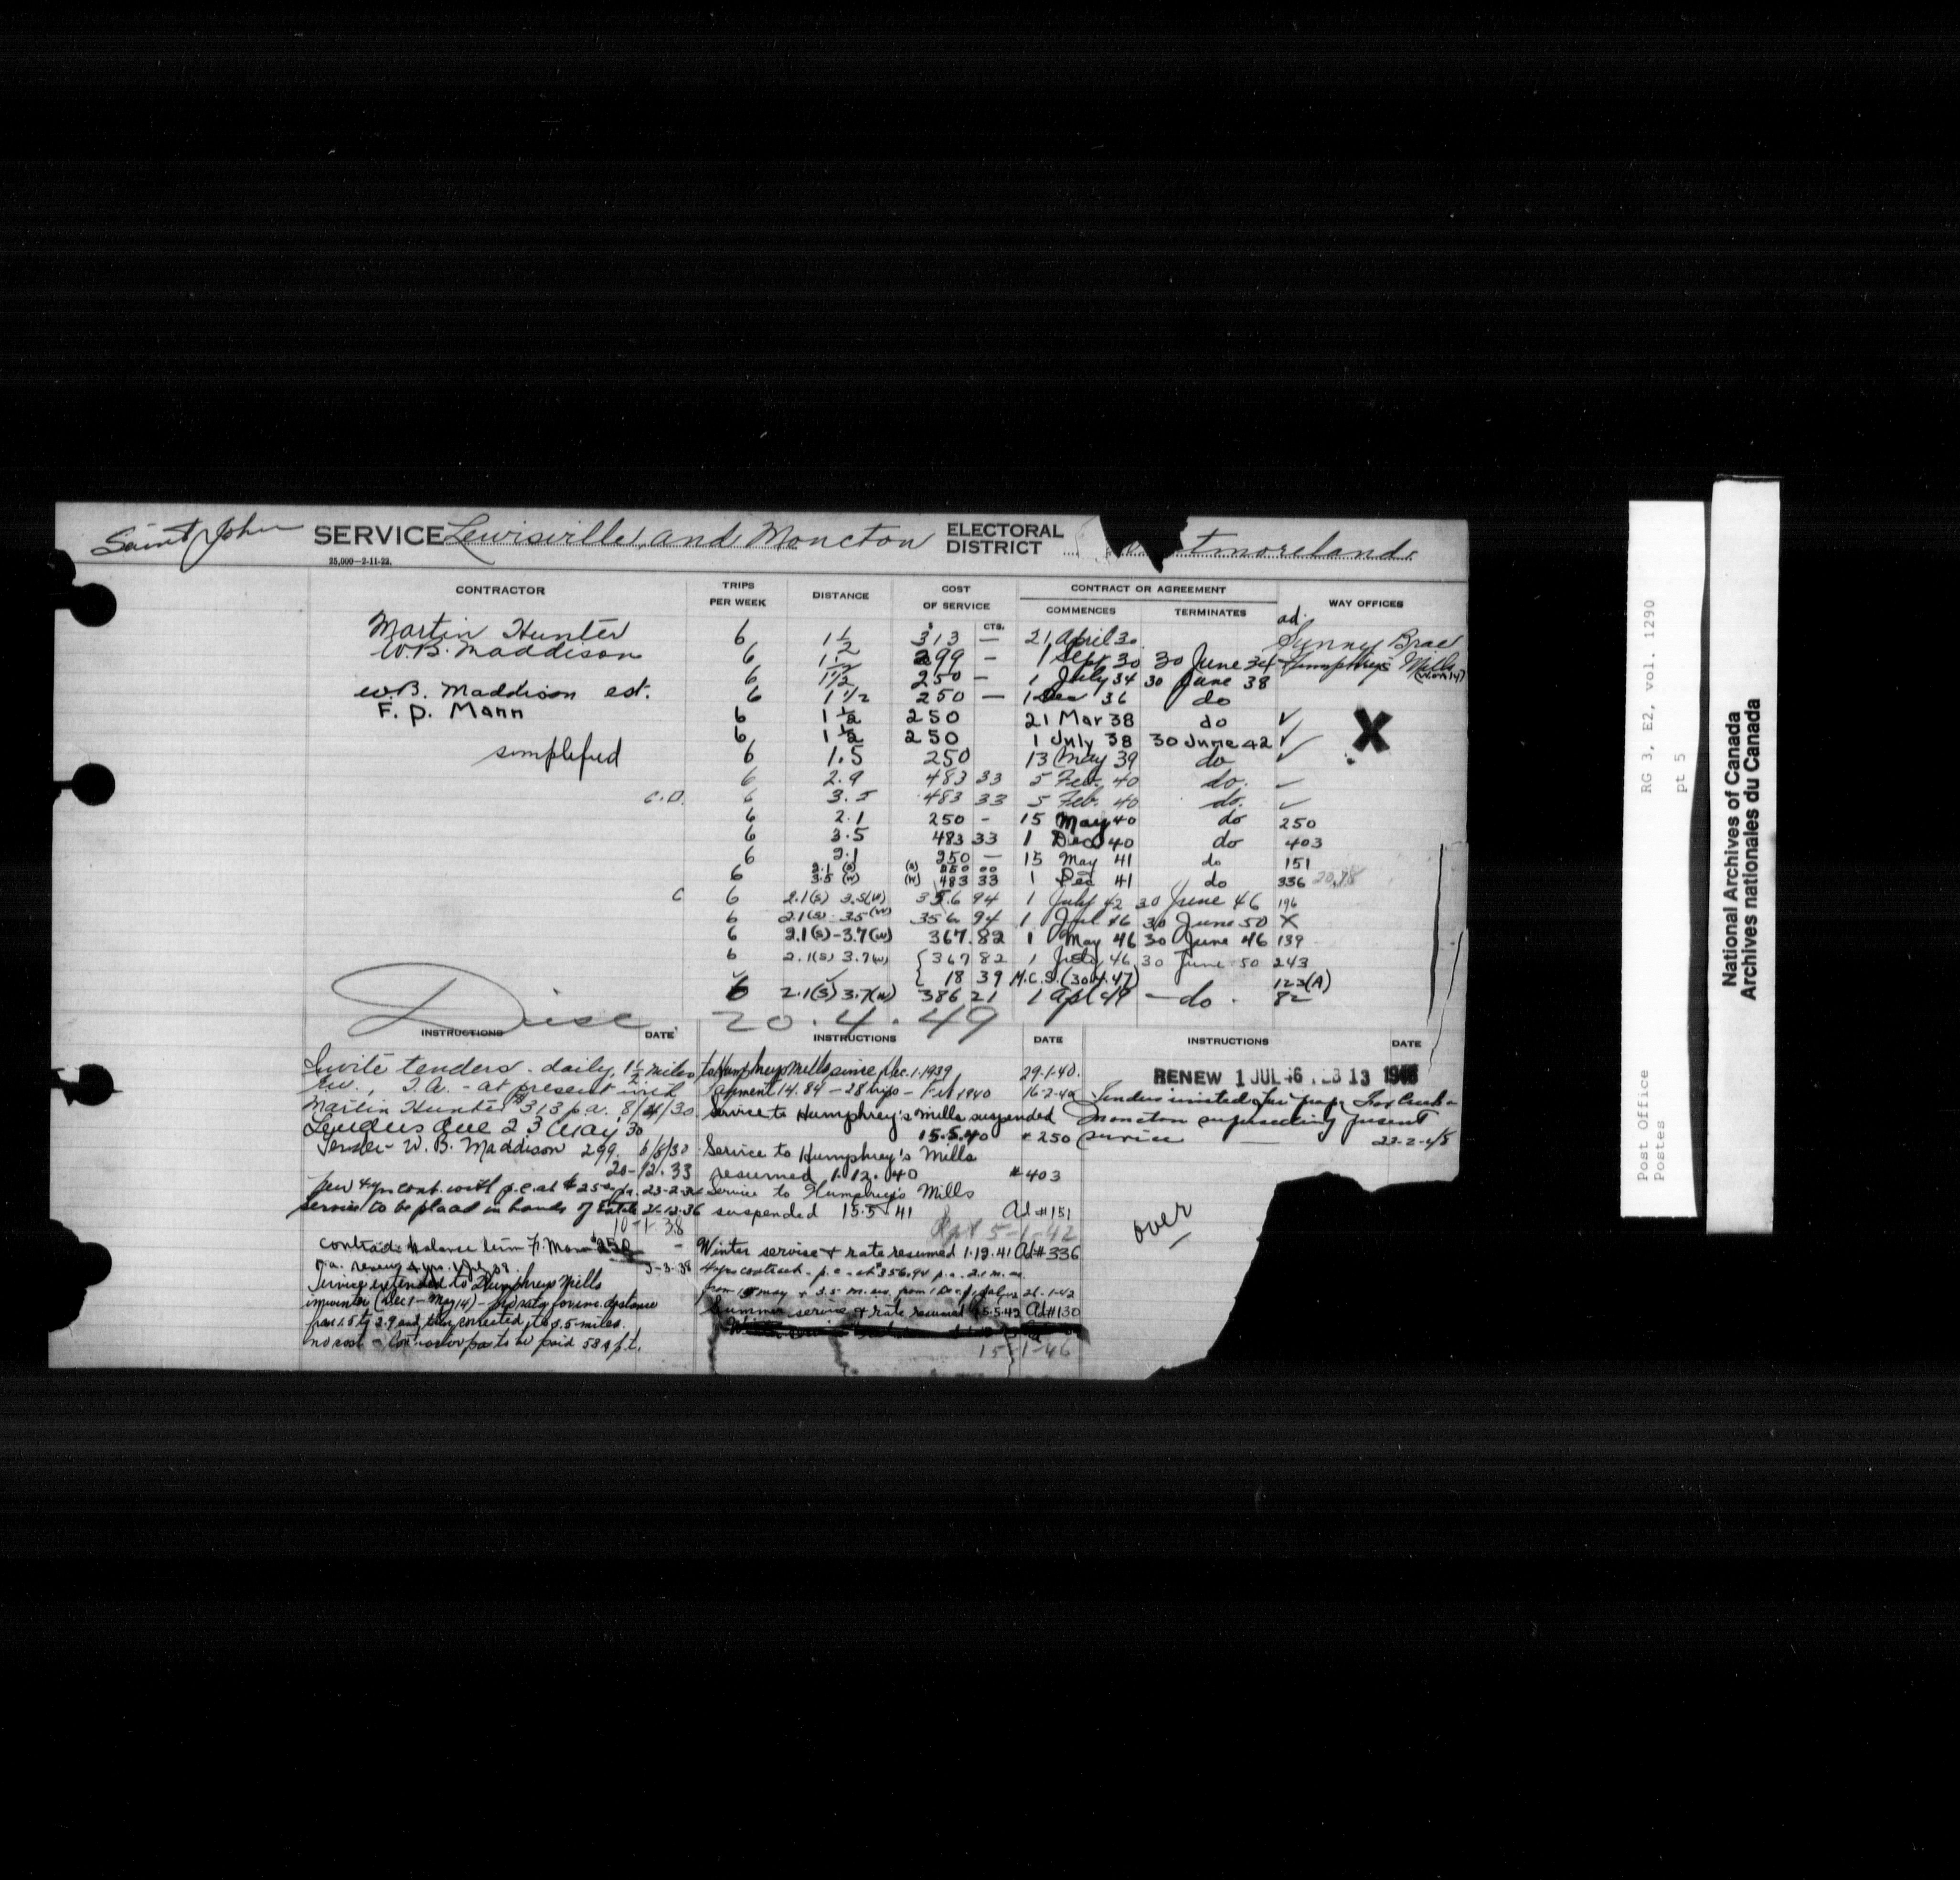 Saint John SERVICE Lewisville and Moncton ELECTORAL DISTRICT tmoreland
25,000—2-11-22.
CONTRACTOR TRIPS PER WEEK DISTANCE COST OF SERVICE CONTRACT OR AGREEMENT WAY OFFICES
$ CTS. COMMENCES TERMINATES ad.
Martin Hunter 6 1½ 313 — 21 April 30 Sunny Brae
W.B. Maddison 6 1½ 299 - 1 Sept 30 30 June 34 Humphrey's Mills
6 1½ 250 - 1 July 34 30 June 38
W.B. Maddison est. 6 1½ 250 — 1 Dec 36 do
F. P. Mann 6 1½ 250 21 Mar 38 do ✓ X
6 1½ 250 1 July 38 30 June 42 ✓
simplified 6 1.5 250 13 May 39 do ✓
6 2.9 483 33 5 Feb. 40 do. ✓
C.D. 6 3.5 483 33 5 Feb. 40 do. ✓
6 2.1 250 - 15 May 40 do 250
6 3.5 483 33 1 Dec 40 do 403
6 2.1 250 — 15 May 41 do 151
6 2.1 (S) 3.5 (W) (S) 250 00 (W) 483 33 1 Dec 41 do 336
C 6 2.1(S) 3.5(W) 356 94 1 July 42 30 June 46 196
6 2.1(S) 3.5(W) 356 94 1 Jul 46 30 June 50 X
6 2.1(S)-3.7(W) 367.82 1 May 46 30 June 46 139
6 2.1(S) 3.7(W) 367 82 1 July 46 30 June 50 243
18 39 M.C.S. (30.4.47) 123(A)
6 2.1(S) 3.7(W) 386 21 1 Apl 49 — do. 82
Disc 20.4.49
INSTRUCTIONS DATE
Invite tenders - daily, 1½ miles
T.A. - at present with
Martin Hunter $313 p.a. 8/4/30
Tenders due 23 May 30
Tender- W.B. Maddison 299. 6/8/30
20-12.33
new 4 yr cont. with p.c. at $250 p.a. 23-2-34
Service to be placed in hands of Estate 21-12-36
10-1-38
Contract balance term F. Mann $250 -
5-3-38
Service extended to Humphreys Mills
in winter (Dec 1 - May 14) - pro rata for inc. distance
from 1.5 to 2.9 and then corrected to 3.5 miles.
INSTRUCTIONS DATE
to Humphreys Mills since Dec. 1. 1939 29-1-40.
Payment 14.84 - 28 trips - Feb 1940 16-2-40
Service to Humphrey's Mills suspended
15.5.40 # 250
Service to Humphrey's Mills
resumed 1.12.40 # 403
Service to Humphreys Mills
suspended 15.5.41 Ad #151
5-1-42
Winter service & rate resumed 1.12.41 Ad #336
4 yrs contract - p.c. at $356.94 p.a. 2.1 m.
21-1-42
Summer service & rate resumed 15.5.42 Ad #130
15-1-46
INSTRUCTIONS DATE
RENEW 1 JUL 46 FEB 13 1946
Tenders invited for prop. Fox Creek &
Moncton superseding present
service 22-2-45
over
Post Office RG 3, E2, vol. 1290
Postes pt 5
National Archives of Canada
Archives nationales du Canada